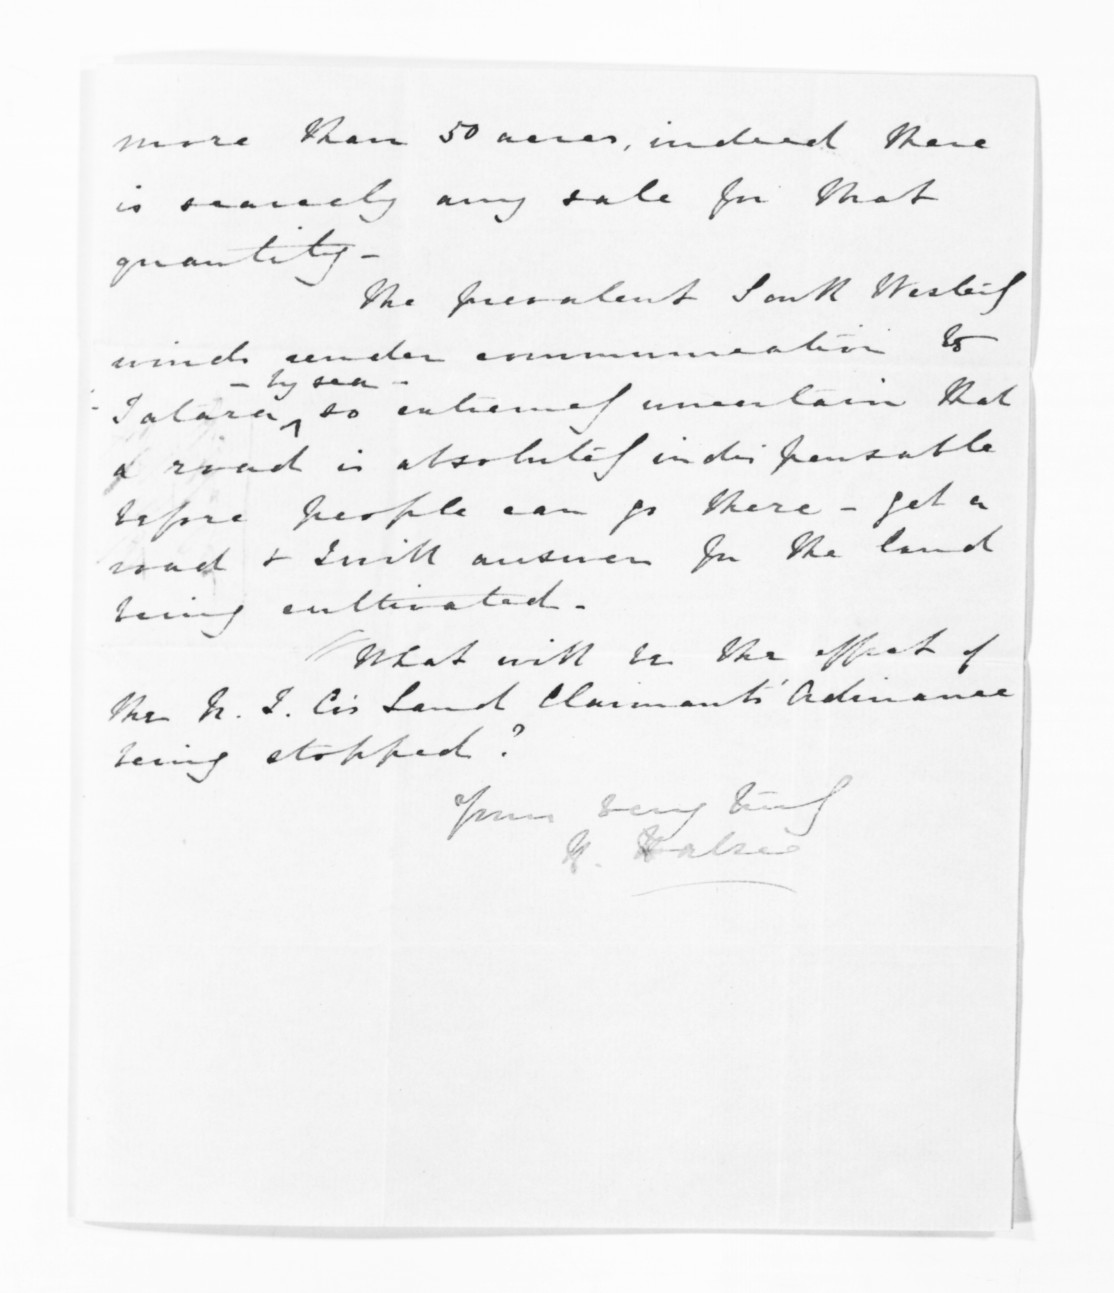 more than 50 acres, indeed there
is scarcely any sale for that
quantity -
The prevalent South Westerly
winds render communication to
- by sea -
Tatara, so extremely uncertain that
a road is absolutely indispensable
before people can go there - get a
road & I will answer for the land
being cultivated -
What will be the effect of
the N. Z. Co's Land Claimants' Ordinance
being stopped?
Yours very truly
H. Halse